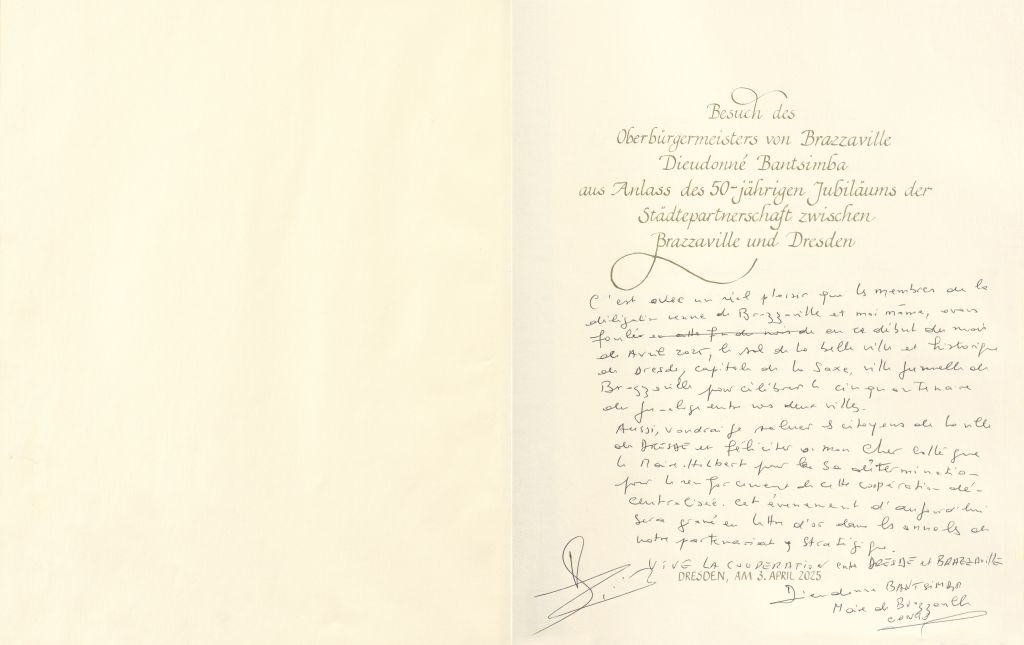 Besuch des
Oberbürgermeisters von Brazzaville
Dieudonné Bantsimba
aus Anlass des 50-jährigen Jubiläums der
Städtepartnerschaft zwischen
Brazzaville und Dresden
C'est avec un réel plaisir que les membres de la
délégation venue de Brazzaville et moi même, avons
foulé en ce début du mois
de Avril 2025, le sol de la belle ville et historique
de Dresde, capitale de la Saxe, ville jumelle de
Brazzaville pour célébrer le cinquantenaire
de jumelage entre nos deux villes.
Aussi, voudrai-je saluer les citoyens de la ville
de DRESDE et féliciter mon cher collègue
le Maire Hilbert pour sa détermination
pour le renforcement de cette coopération dé-
centralisée. Cet évènement d'aujourd'hui
sera gravé en lettre d'or dans les annales de
notre partenariat stratégique.
VIVE LA COOPERATION entre DRESDE et BRAZZAVILLE
DRESDEN, AM 3. APRIL 2025
Dieudonné BANTSIMBA
Maire de Brazzaville
CONGO